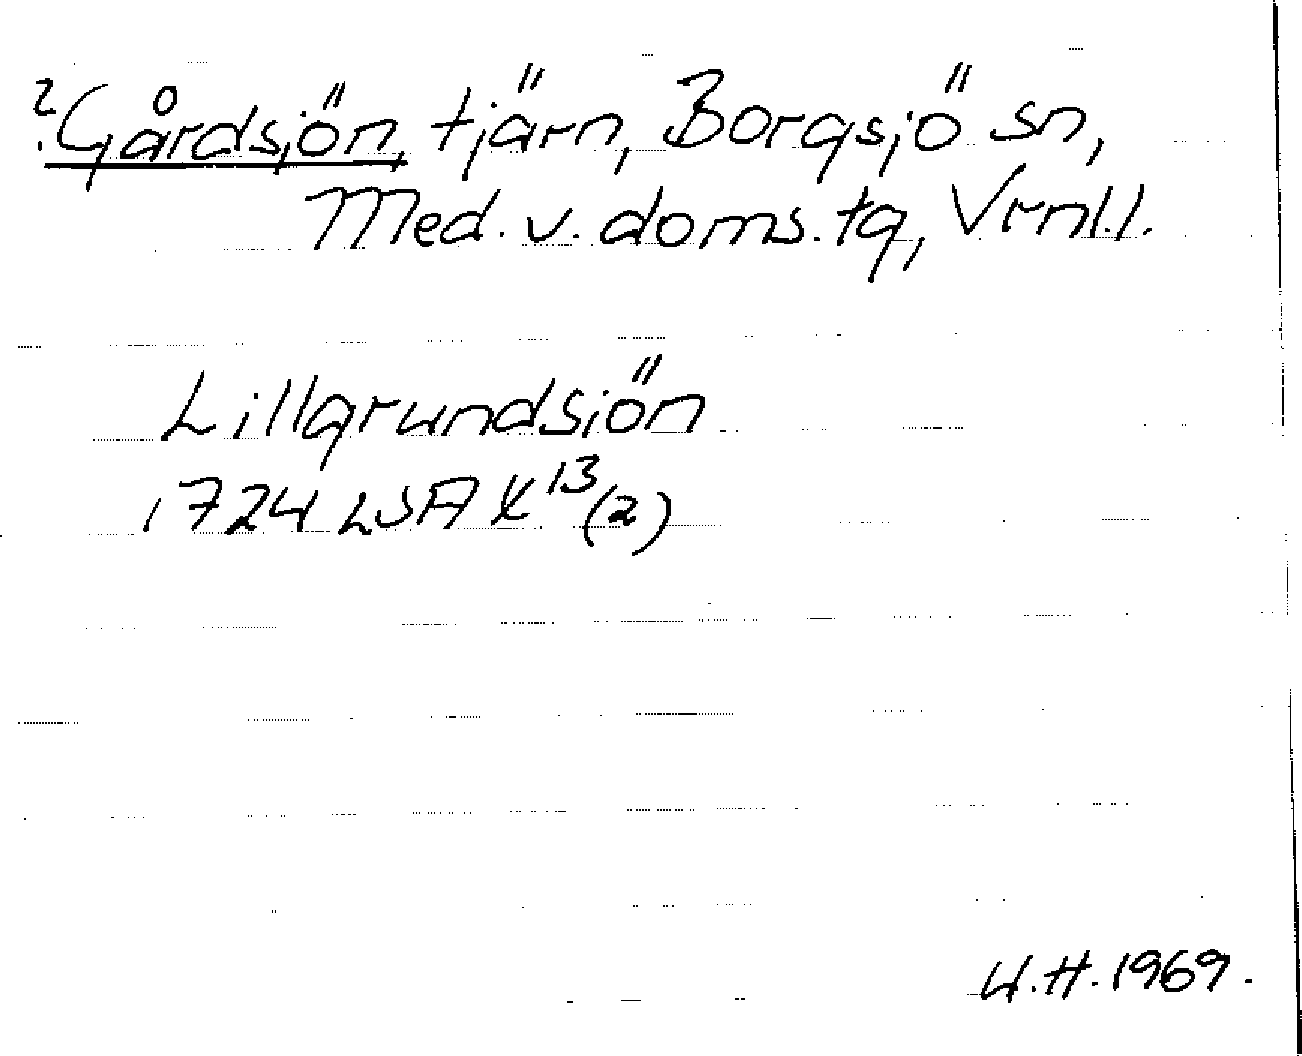 ?Gårdsjön, tjärn, Borgsjö sn,
Med. v. doms. tg, Vrnl.l.
Lillgrundsiön
1724 LSA X 13 (2)
U.H. 1969.